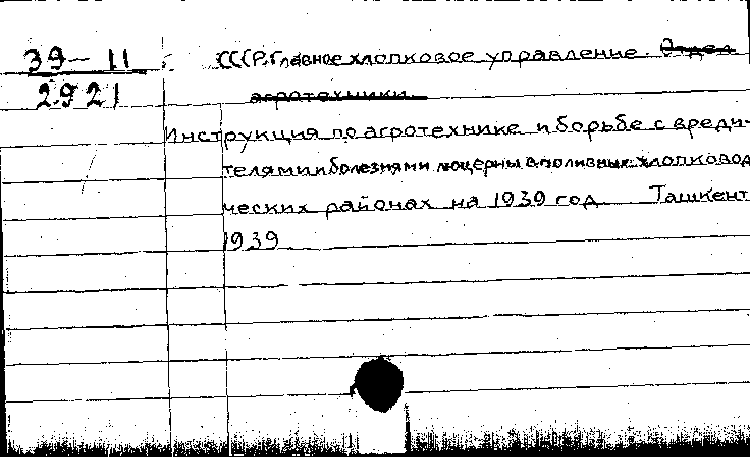 39-11
2921
СССР. Главное хлопковое управление. Отдел
агротехники.
Инструкция по агротехнике и борьбе с вреди-
телями и болезнями люцерны в поливных хлопковод
ческих районах на 1939 год Ташкент
1939